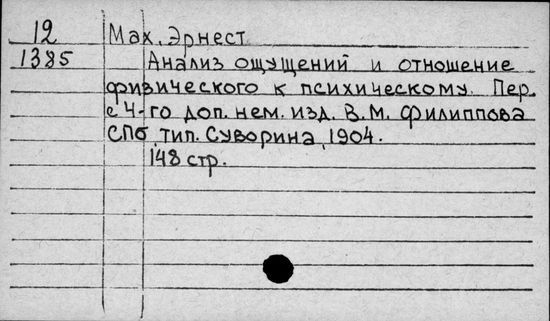 12 Мах, Эрнест
1385 Анализ ощущений и отношение
физического к психическому. Пер.
с 4-го доп. нем. изд. В.М. Филиппова
СПб, тип. Суворина, 1904.
148 стр.